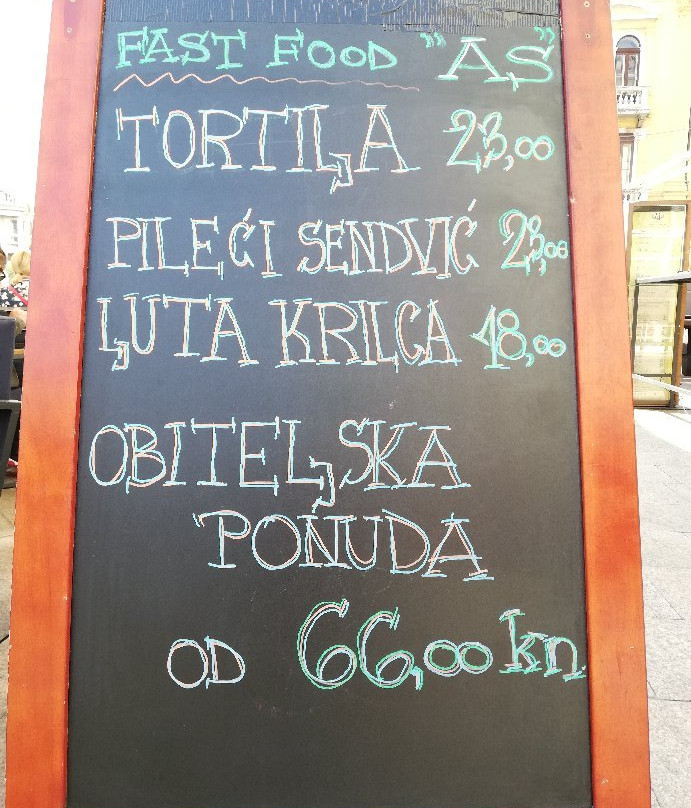 FAST FOOD "AS"
TORTIĻA 23,00
PILEĆI SENDVIĆ 23,00
ĻUTA KRILCA 18,00
OBITEĻSKA
PONUDA
OD 66,00 kn